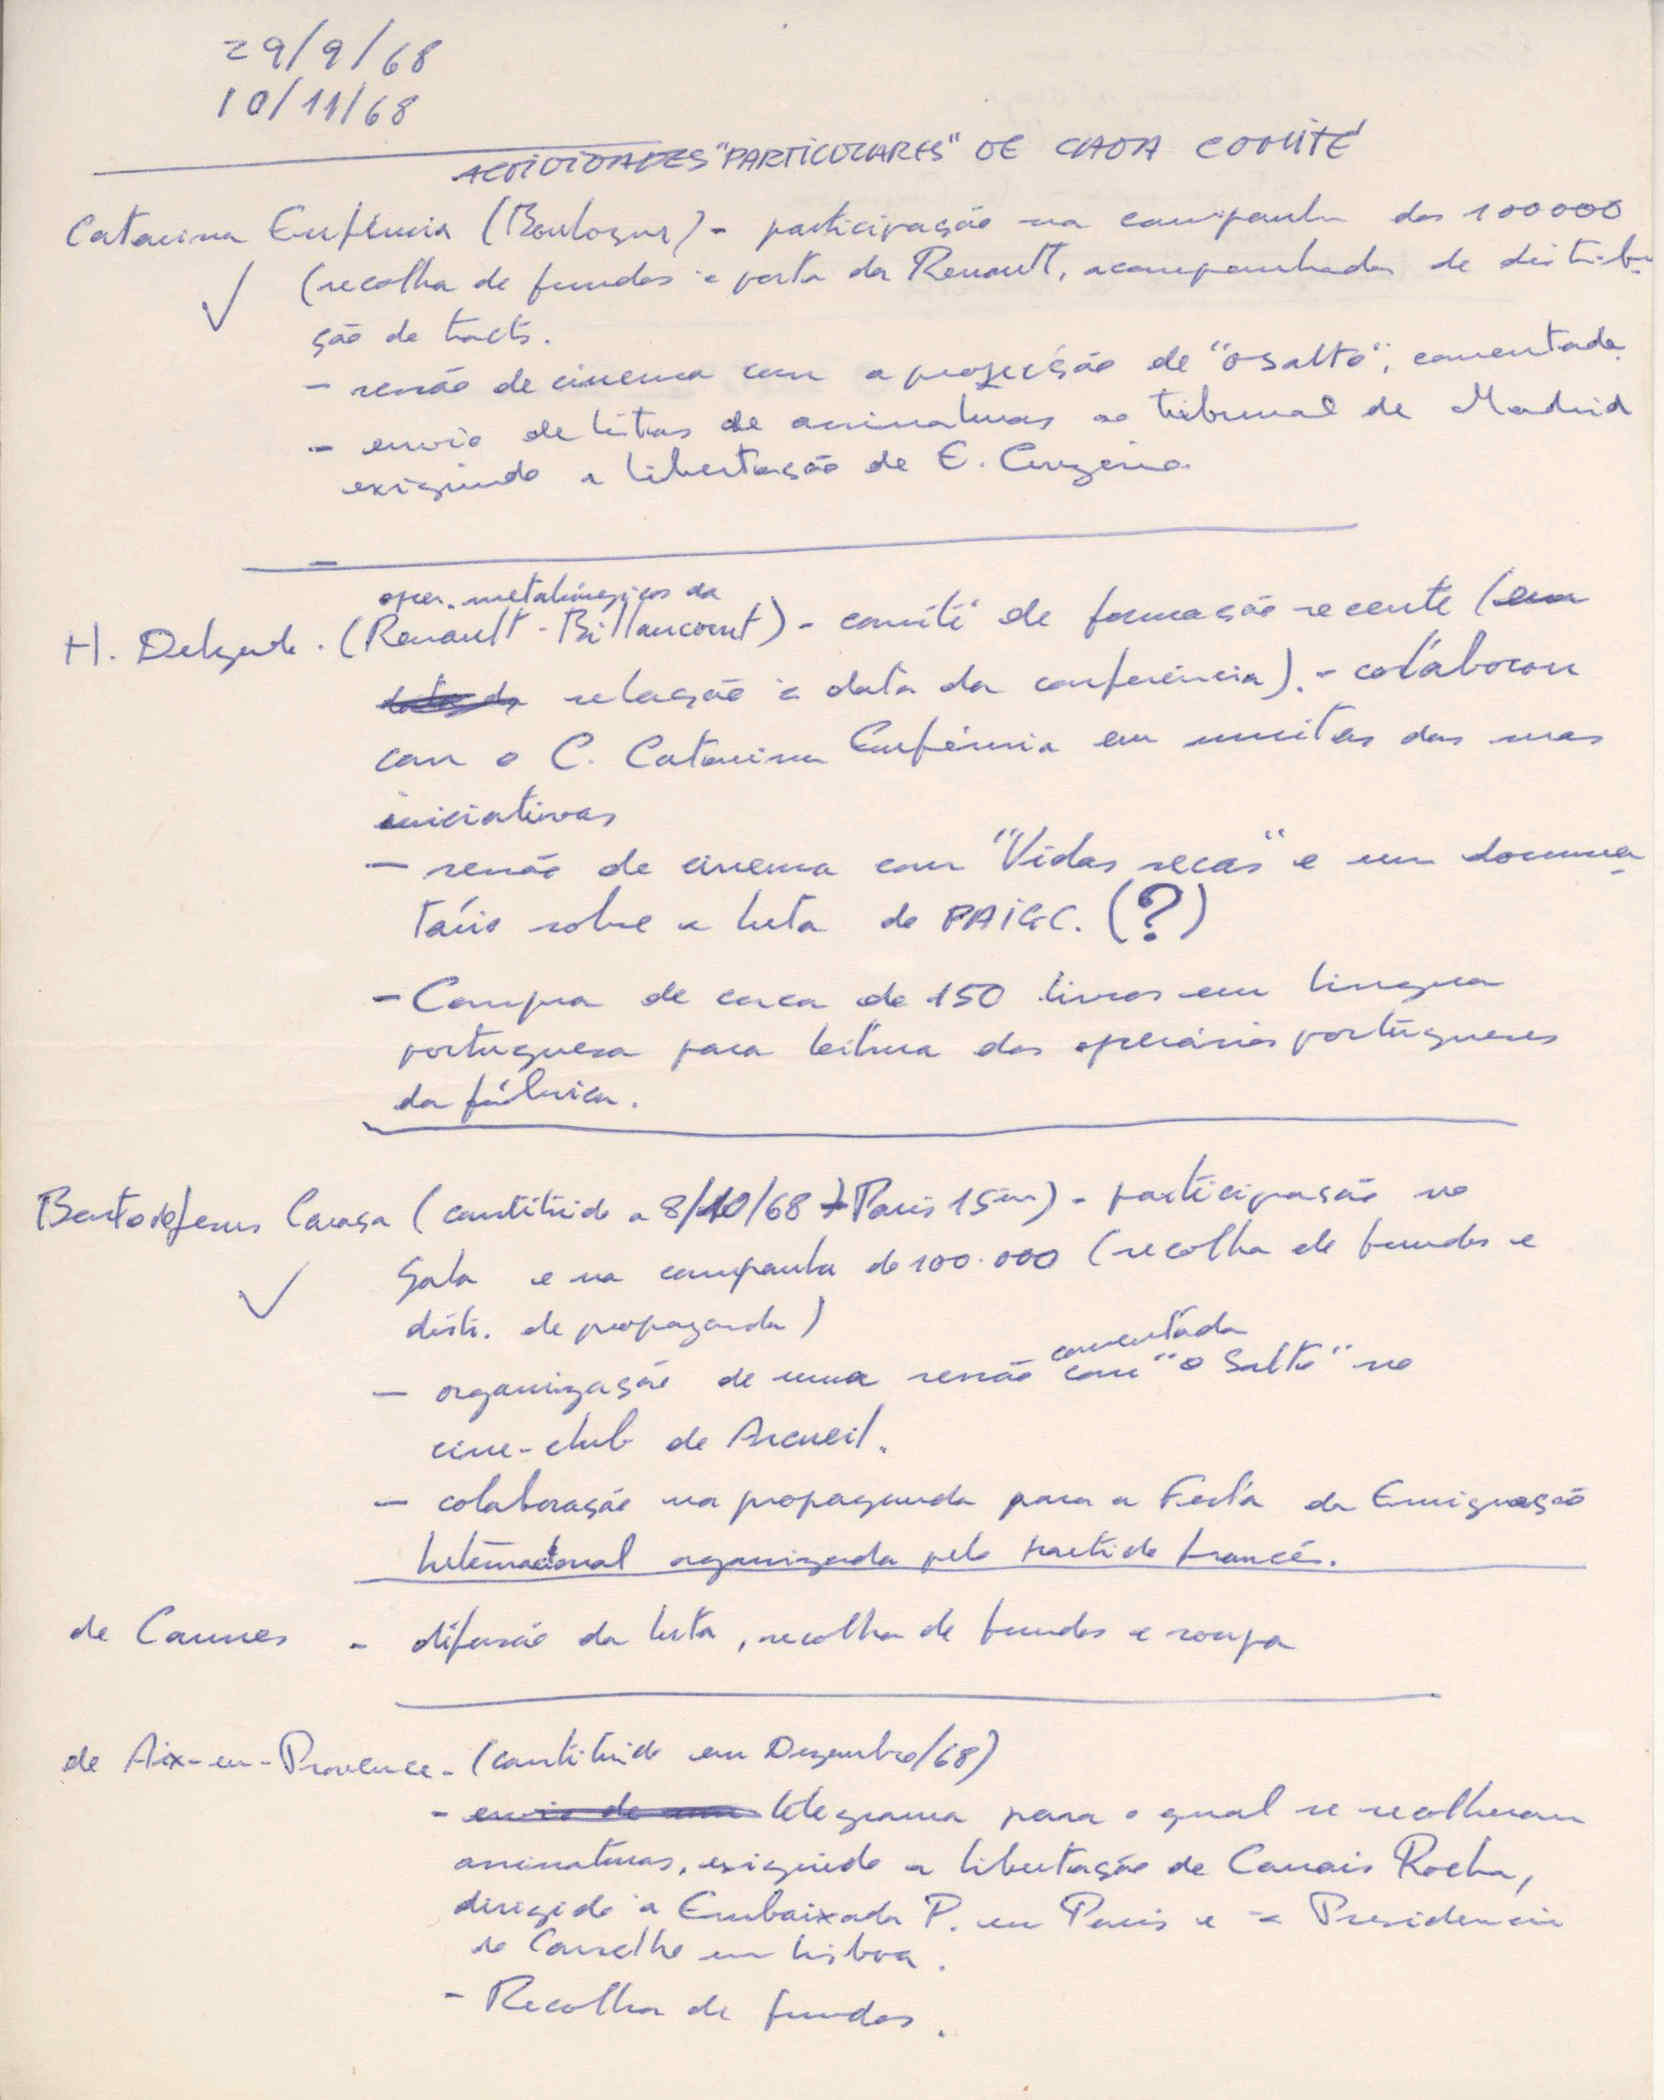 29/9/68
10/11/68
ACTIVIDADES "PARTICULARES" DE CADA COMITÉ
Catarina Eufémia (Boulogne) - participação na campanha dos 100000
(recolha de fundos à porta da Renault, acompanhada de distribu
ção de tracts.
- sessão de cinema com a projecção de "O Salto", comentada.
- envio de listas de assinaturas ao tribunal de Madrid
exigindo a libertação de E.
oper. metalúrgicos da
H. Delgado. (Renault - Billancourt) - comité de formação recente (em
relação à data da conferência). - colaborou
com o C. Catarina Eufémia em muitas das suas
iniciativas
- sessão de cinema com "Vidas secas" e um documen
tário sobre a luta do PAIGC. (?)
- Compra de cerca de 150 livros em lingua
portuguesa para leitura dos operários portugueses
da fábrica.
Bento de Jesus Caraça (constituido a 8/10/68 - Paris 15ème) - participação no
Gala e na campanha do 100.000 (recolha de fundos e
distr. de propaganda)
comentada
- organização de uma sessão com "o Salto" no
cine-club de Arcueil.
- colaboração na propaganda para a Festa da Emigração
Internacional organizada pelo partido francês.
de Cannes - difusão da luta, recolha de fundos e roupa
de Aix-en-Provence - (constituido em Dezembro/68)
- envio de um telegrama para o qual se recolheram
assinaturas, exigindo a libertação de Canais Rocha,
dirigido à Embaixada P. em Paris e à Presidencia
do Conselho em Lisboa.
- Recolha de fundos.